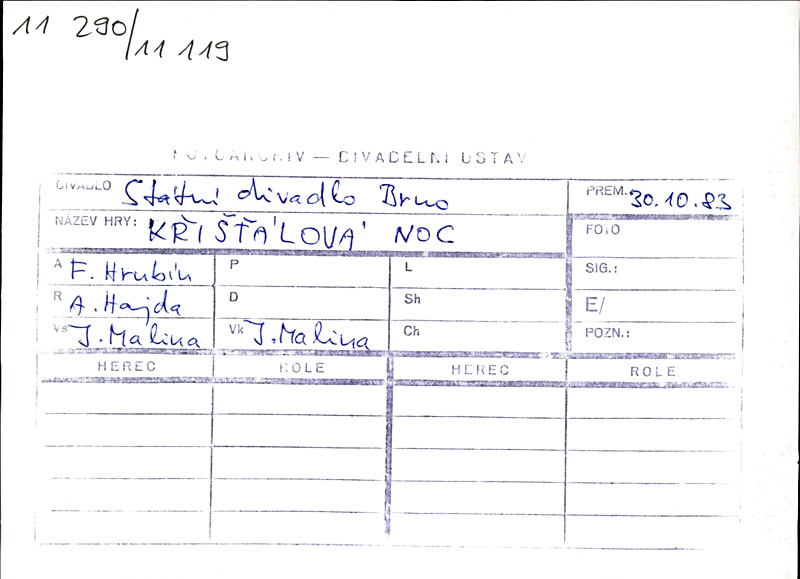 11 290/11 119
FOTOARCHIV — DIVADELNÍ ÚSTAV
DIVADLO Státní divadlo Brno PREM. 30.10.83
NÁZEV HRY: KŘIŠŤÁLOVÁ NOC FOTO
A F. Hrubín P L SIG.:
R A. Hajda D Sh E/
Vs J. Malina Vk J. Malina Ch POZN.:
HEREC ROLE HEREC ROLE